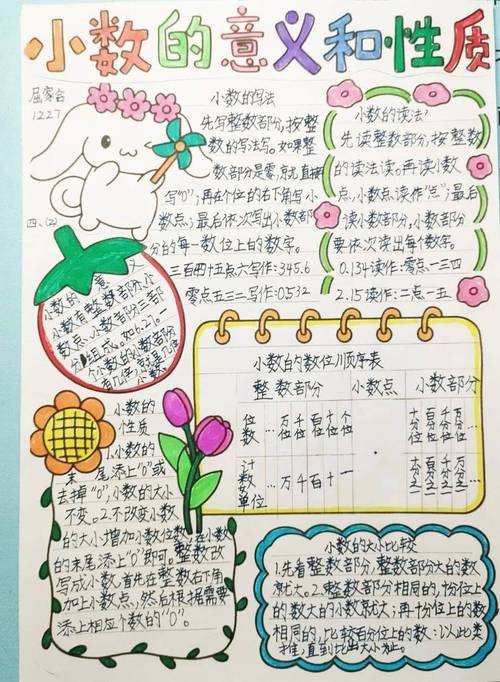 小数的意义和性质
屈家合
1227
四、(2)
小数的写法
先写整数部分,按整
数的写法写。如果整
数部分是零,就直接
写"0";再在个位的右下角写小
数点;最后依次写出小数部
分的每一数位上的数字。
三百四十五点六写作:345.6
零点五三二写作:0.532
小数的读法
先读整数部分,按整数
的读法读。再读小数
点,小数点读作"点";最后
读小数部分,小数部分
要依次读出每个数字。
0.134读作:零点一三四
2.15读作:二点一五
小数的意义
小数有整数部分、小
数点、小数部分三部
分组成。如:0.27一
个小数的小数部分
有几位,就是几位
小数。
小数的数位顺序表
整数部分 小数点 小数部分
数位 … 万位 千位 百位 十位 个位 十分位 百分位 千分位 万分位 …
计数单位 … 万 千 百 十 一 十分之一 百分之一 千分之一 万分之一 …
小数的
性质
末尾添上"0"或
去掉"0",小数的大小
不变。2.不改变小数
的大小增加小数位数,在小数
的末尾添上"0"即可。整数改
写成小数,首先在整数右下角
加上小数点,然后根据需要
添上相应个数的"0"。
小数的大小比较
1.先看整数部分,整数部分大的数
就大。2.整数部分相同的,十分位上
的数大的小数就大;再十分位上的数
相同的,比较百分位上的数:以此类
推,直到比出大小为止。